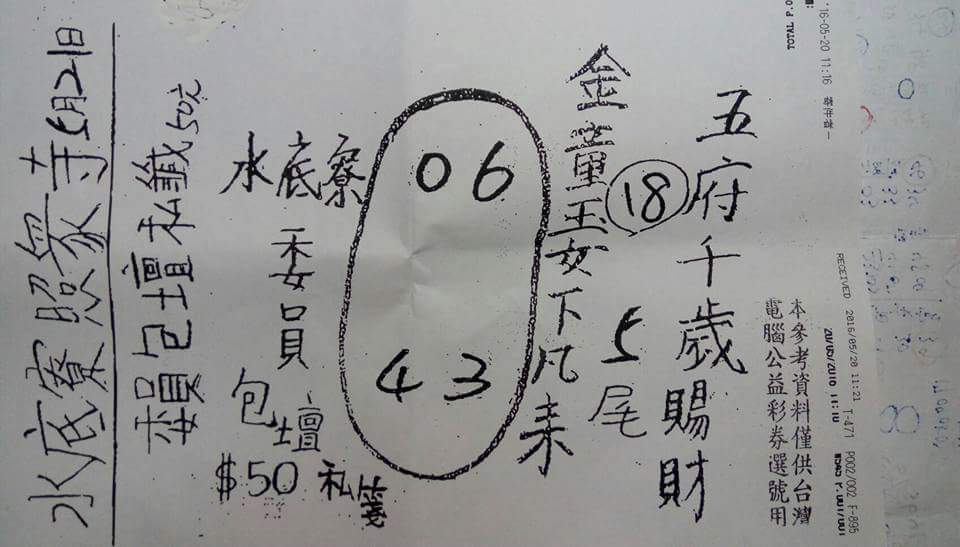 '16-05-20 11:16
TOTAL P.0
五府千歲賜財
18
5尾
金童玉女下凡來
06
43
水底寮
委員
包壇
$50 私箋
水底寮照眾寺5月21日
委員包壇私籤50元
RECEIVED 2016/05/20 11:21 T-471 P002/002 F-895
20/05/2016 11:10
本參考資料僅供台灣
電腦公益彩券選號用